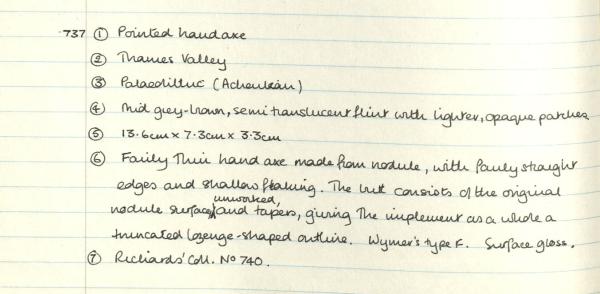 737 ① Pointed handaxe
② Thames Valley
③ Palaeolithic (Acheulean)
④ Mid grey-brown, semi translucent flint with lighter, opaque patches
⑤ 13.6cm x 7.3cm x 3.3cm
⑥ Fairly thin hand axe made from nodule, with fairly straight
edges and shallow flaking. The butt consists of the original
nodule surface, unworked, and tapers, giving the implement as a whole a
truncated lozenge-shaped outline. Wymer's type F. Surface gloss.
⑦ Richards' Coll. No 740.